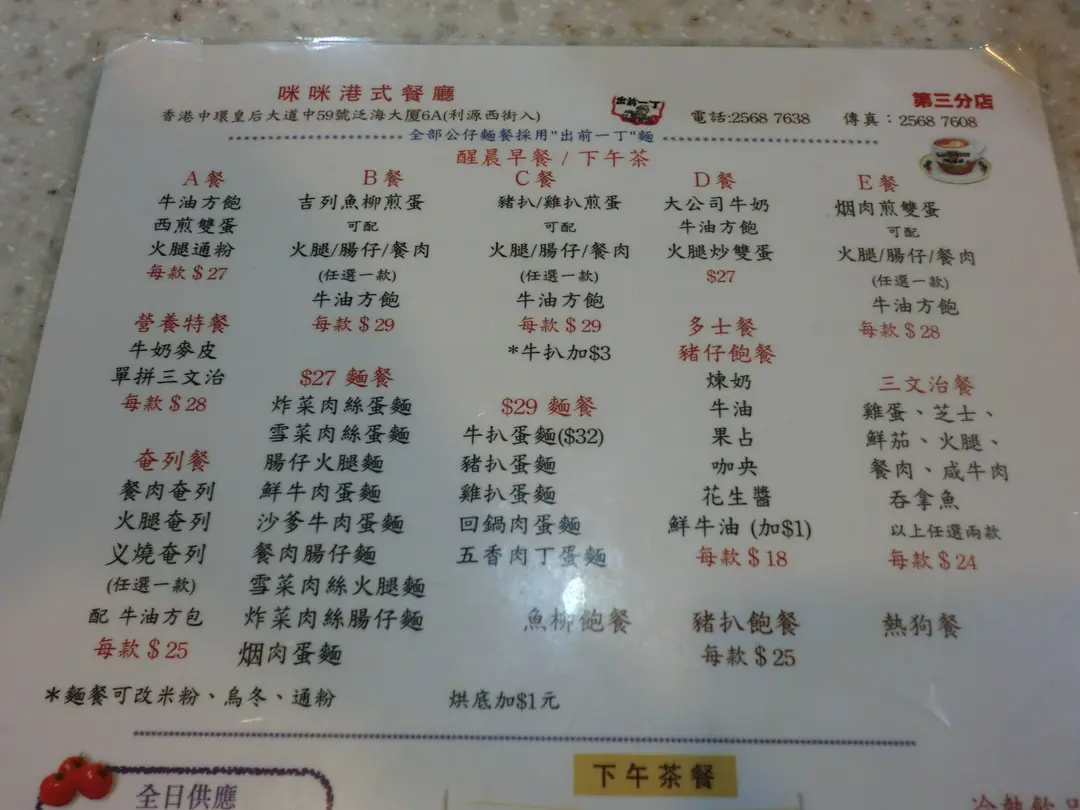 咪咪港式餐廳
第三分店
香港中環皇后大道中59號泛海大廈6A(利源西街入)
出前一丁
電話:2568 7638
傳真：2568 7608
全部公仔麵餐採用"出前一丁"麵
醒晨早餐 / 下午茶
A餐
牛油方飽
西煎雙蛋
火腿通粉
每款 $ 27
營養特餐
牛奶麥皮
單拼三文治
每款 $ 28
奄列餐
餐肉奄列
火腿奄列
义燒奄列
(任選一款)
配 牛油方包
每款 $ 25
B餐
吉列魚柳煎蛋
可配
火腿/腸仔/餐肉
(任選一款)
牛油方飽
每款 $ 29
$27 麵餐
炸菜肉絲蛋麵
雪菜肉絲蛋麵
腸仔火腿麵
鮮牛肉蛋麵
沙爹牛肉蛋麵
餐肉腸仔麵
雪菜肉絲火腿麵
炸菜肉絲腸仔麵
烟肉蛋麵
C餐
豬扒/雞扒煎蛋
可配
火腿/腸仔/餐肉
(任選一款)
牛油方飽
每款 $ 29
*牛扒加$3
$29 麵餐
牛扒蛋麵($32)
豬扒蛋麵
雞扒蛋麵
回鍋肉蛋麵
五香肉丁蛋麵
魚柳飽餐
D餐
大公司牛奶
牛油方飽
火腿炒雙蛋
$27
多士餐
豬仔飽餐
煉奶
牛油
果占
咖央
花生醬
鮮牛油 (加$1)
每款 $ 18
豬扒飽餐
每款 $ 25
E餐
烟肉煎雙蛋
可配
火腿/腸仔/餐肉
(任選一款)
牛油方飽
每款 $ 28
三文治餐
雞蛋、芝士、
鮮茄、火腿、
餐肉、咸牛肉
吞拿魚
以上任選兩款
每款 $ 24
熱狗餐
*麵餐可改米粉、烏冬、通粉
烘底加$1元
全日供應
下午茶餐